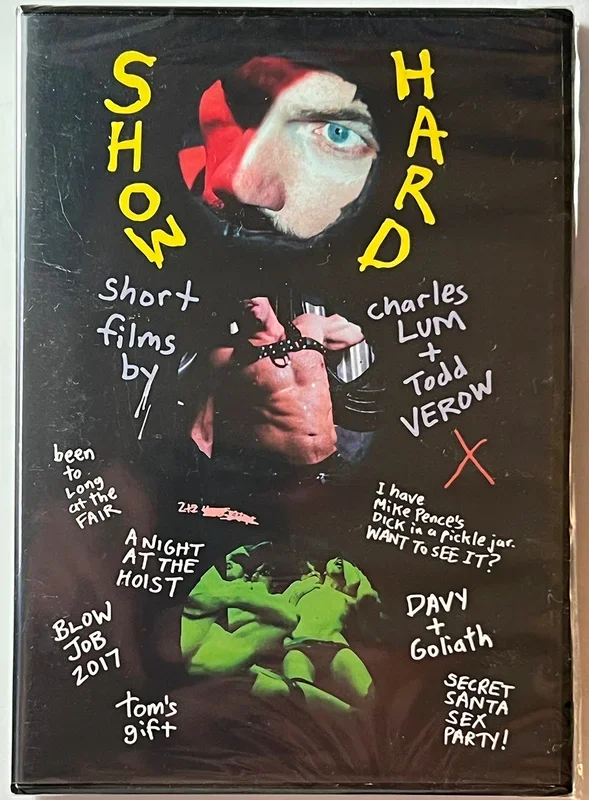 SHOW
HARD
short
films
by
charles
LUM
+
Todd
VEROW
X
been
to
Long
at the
FAIR
I have
Mike Pence's
DICK in a pickle jar.
WANT TO SEE IT?
A NIGHT
AT THE
HOIST
DAVY
+
Goliath
BLOW
JOB
2017
SECRET
SANTA
SEX
PARTY!
tom's
gift